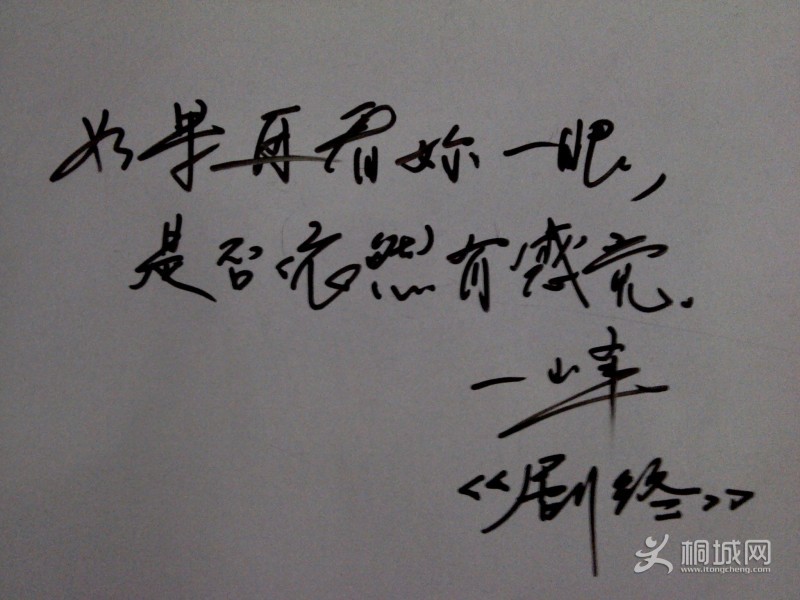 如果再看妳一眼,
是否依然有感觉.
一山车
《剧终》
桐城网
www.itongcheng.com